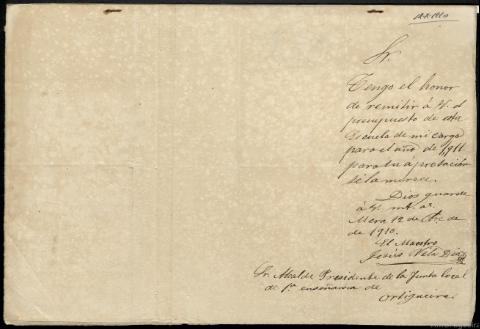 Sr.
Tengo el honor
de remitir á V. el
presupuesto de esta
Escuela de mi cargo
para el año de 1911
para su apretación
si la merece.
Dios guarde
á V. ms. as.
Mera 12 de de
de 1910.
El Maestro
Jesús Díaz
Sr. Alcalde Presidente de la Junta local
de 1ª enseñanza de
Ortigueira.